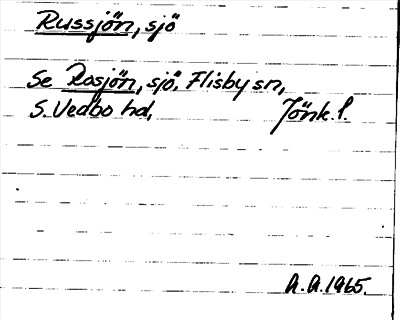 Russjön, sjö
Se Rosjön, sjö, Flisby sn,
S. Vedbo hd, Jönk. l.
A.A. 1965.